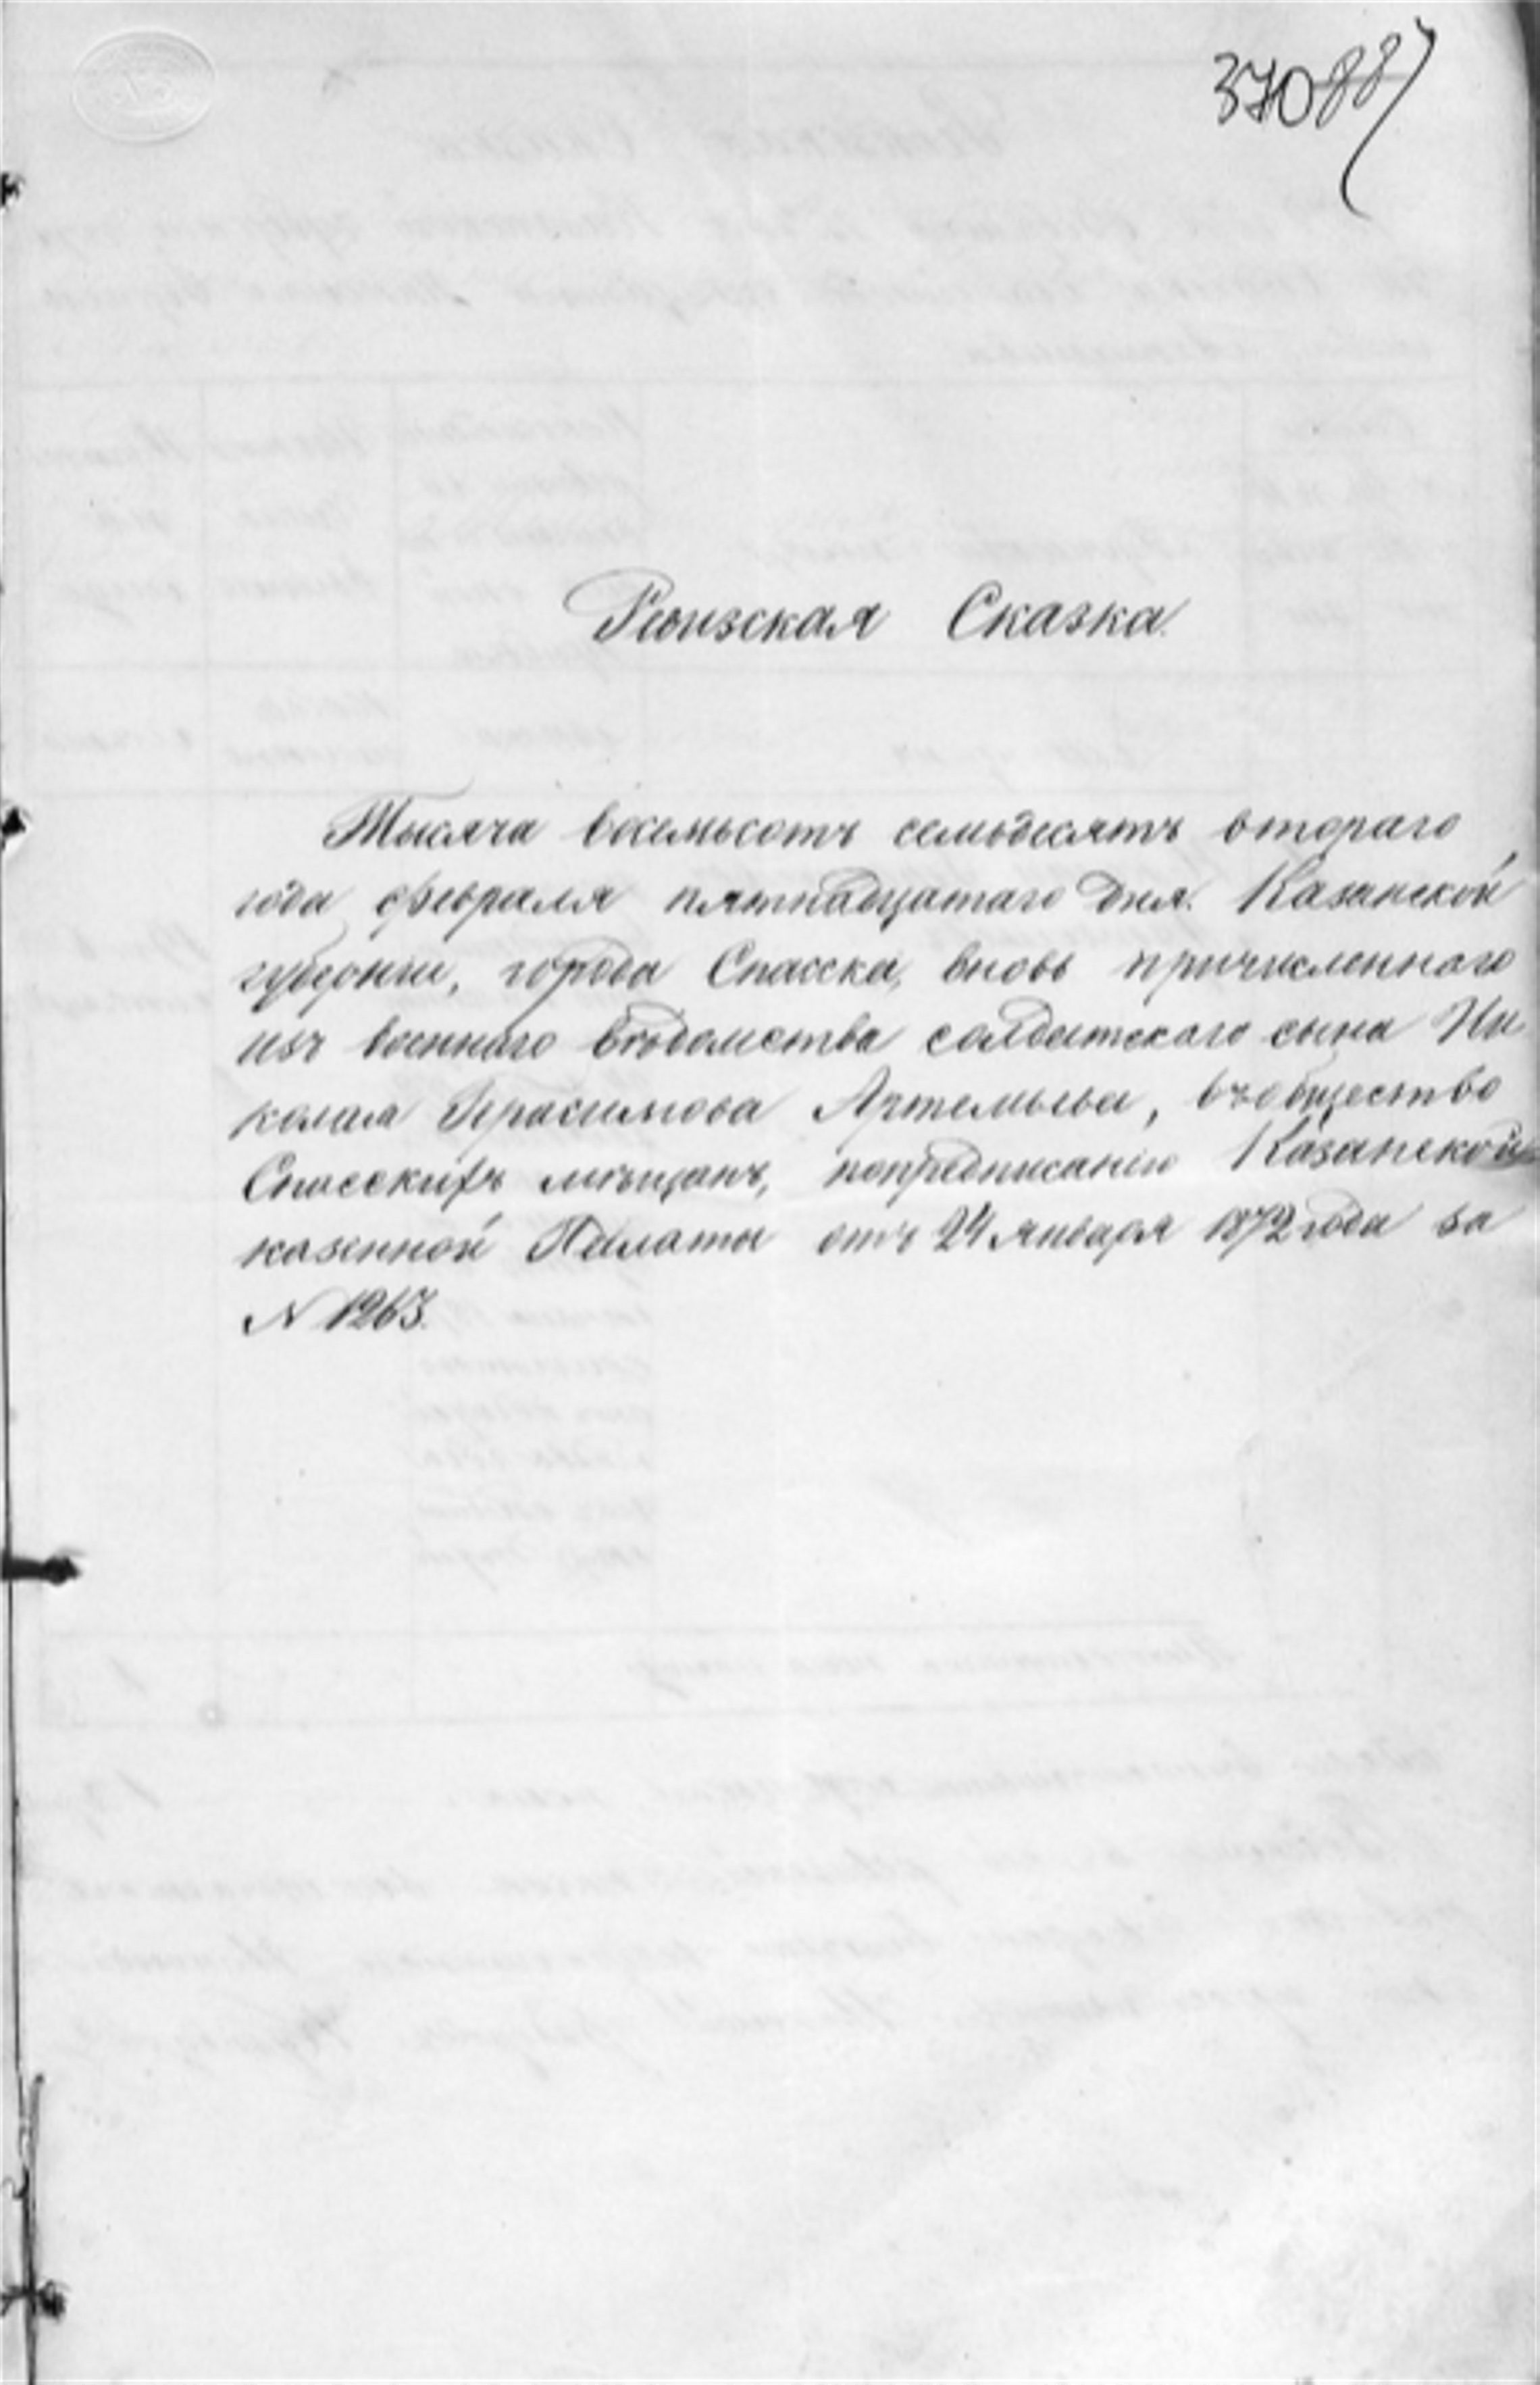 370 88
Ревизская Сказка.
Тысяча восемьсотъ семьдесятъ втораго
года февраля пятнадцатаго дня. Казанской
губерніи, города Спасска, вновь причисленнаго
изъ военнаго вѣдомства солдатскаго сына Ни
колая Герасимова Артемьева, въ общество
Спасскихъ мѣщанъ, по предписанію Казанской
казенной Палаты отъ 24 января 1872 года за
N 1263.